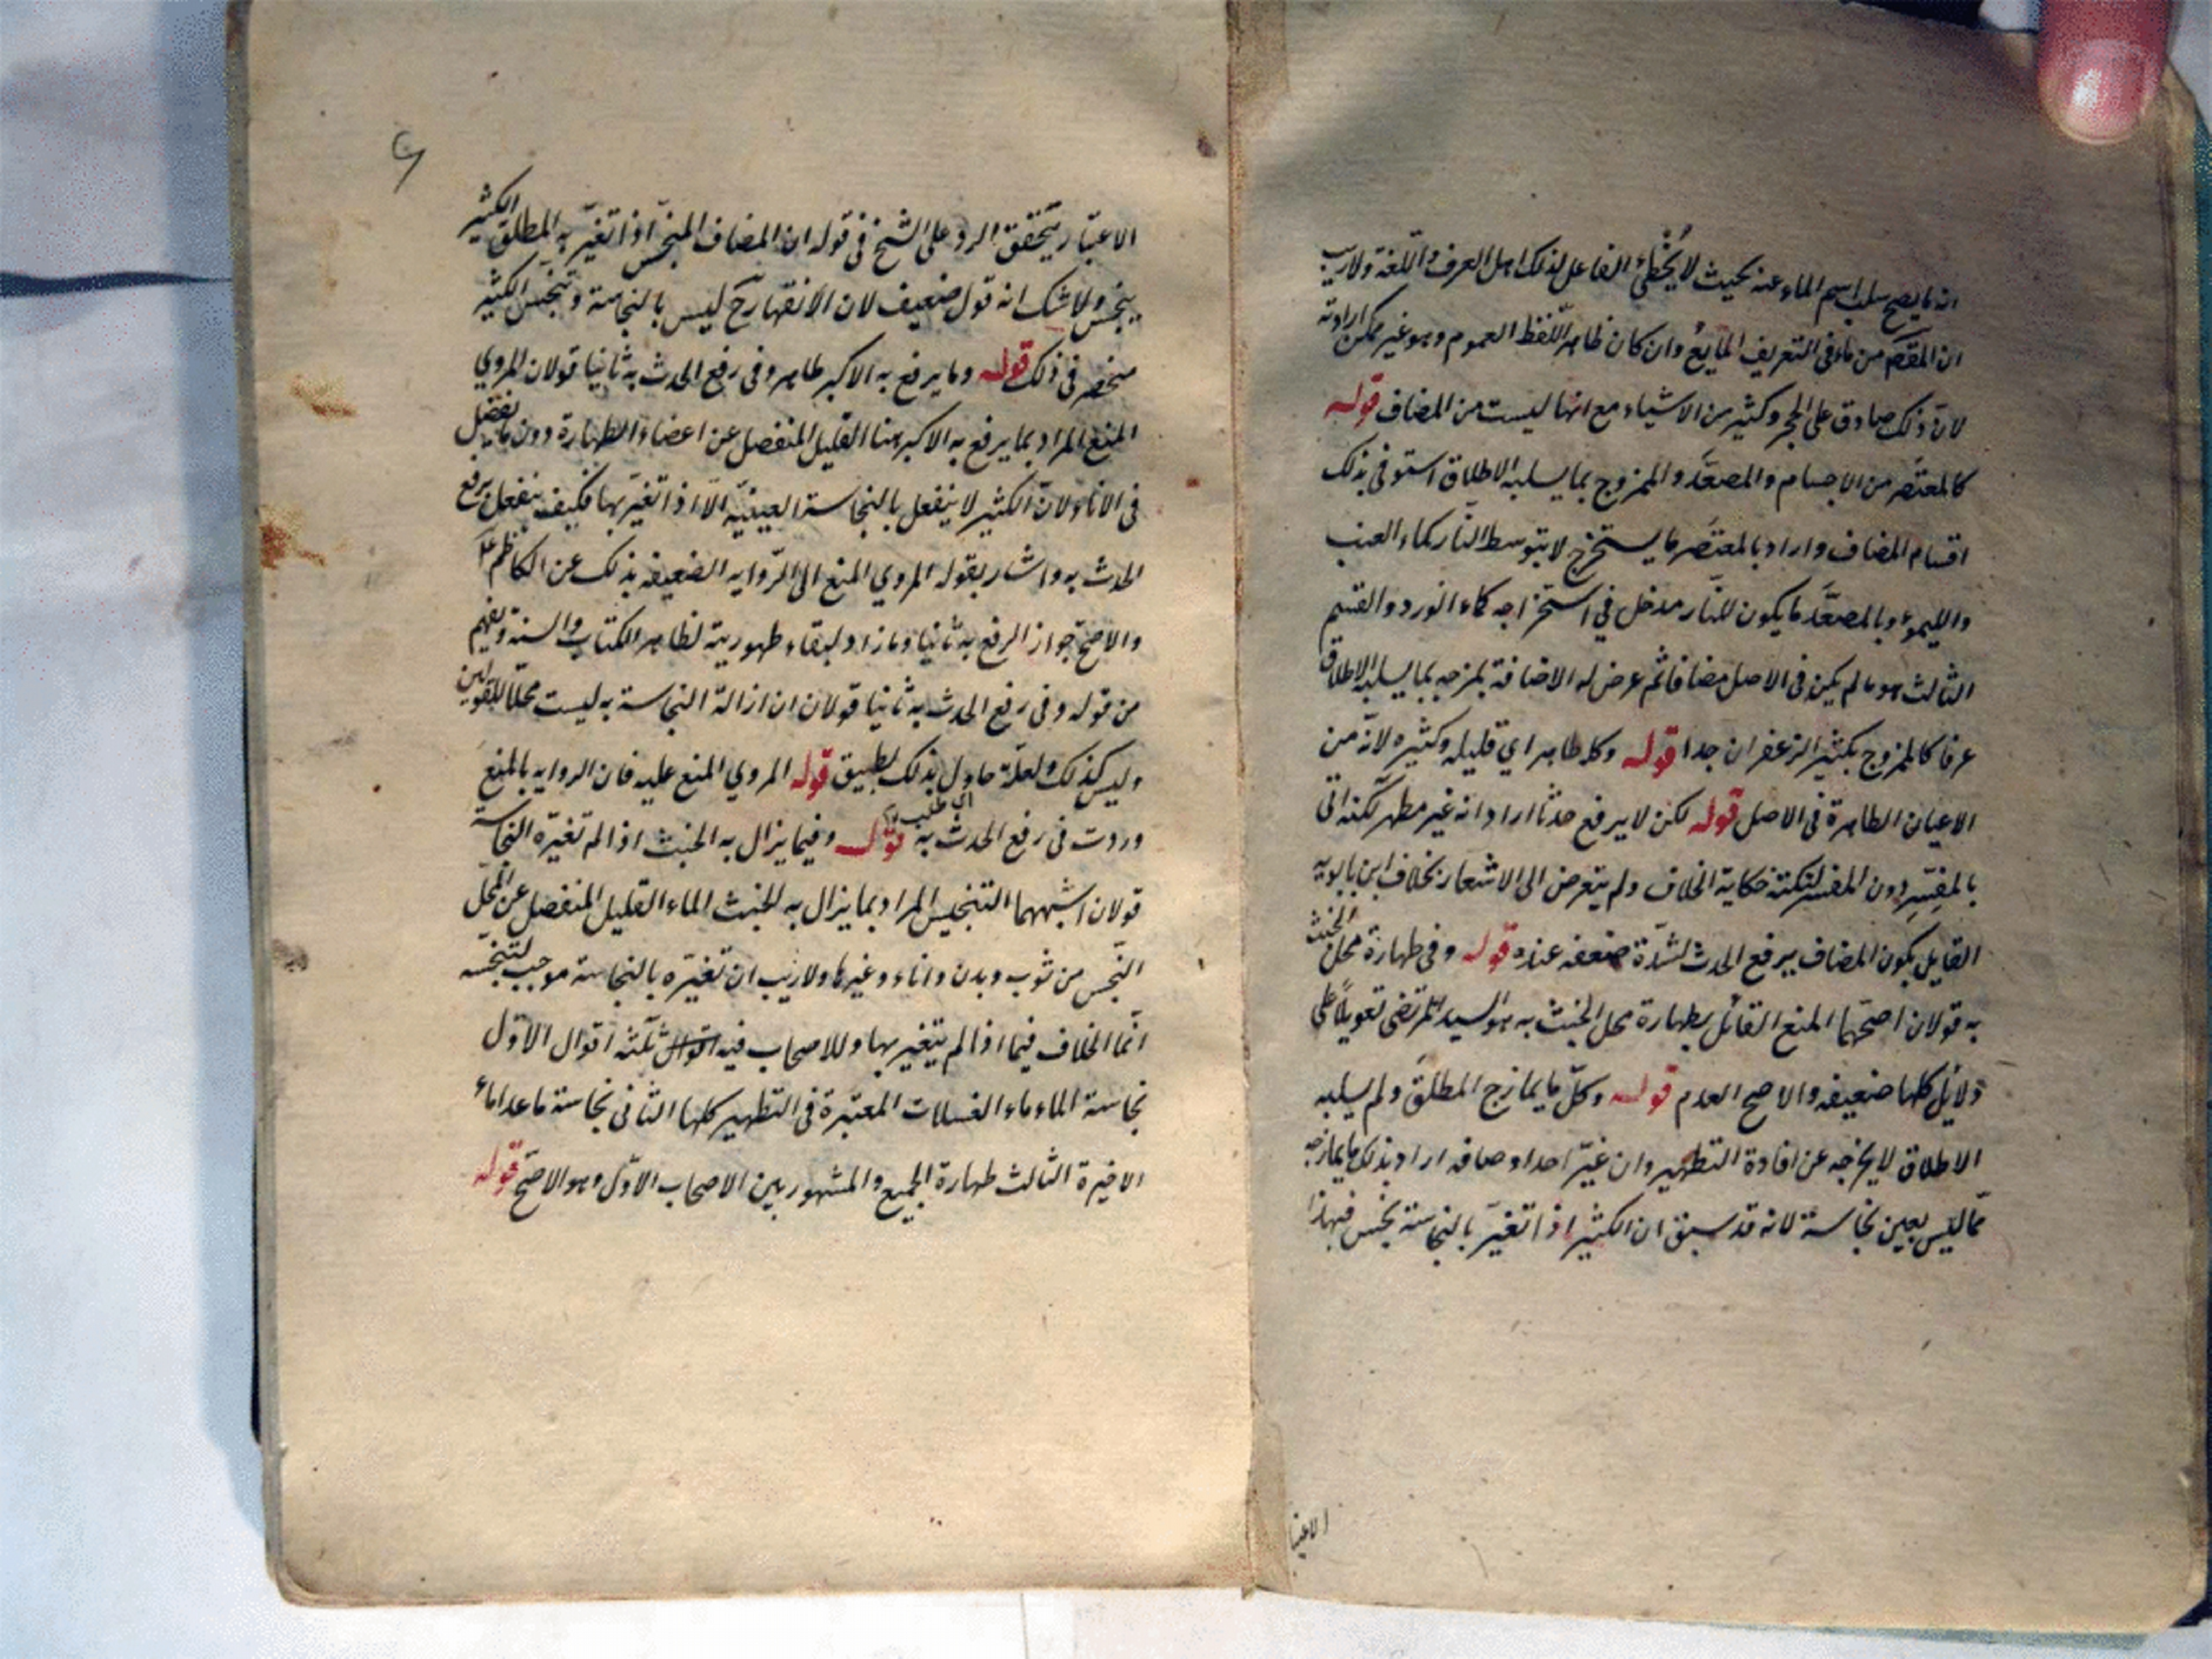 ان ما يصح سلب اسم الماء عنه بحيث لا يُخَطِّئ الفاعل لذلك اهل العرف واللغة ولا ريب
ان المقصَّر من ماء في التعريف المايع وان كان ظاهر اللفظ العموم وهو غير ممكن ارادته
لان ذلك صادق على الحجر وكثير من الاشياء مع انها ليست من المضاف قوله
كالمعتصَر من الاجسام والمصعَّد والممزوج بما يسلبه الاطلاق استوفى بذلك
اقسام المضاف واراد بالمعتصر ما يستخرج لا بتوسط النار كماء العنب
والليمو وبالمصعَّد ما يكون للنار مدخل في استخراجه كماء الورد والقسيم
الثالث هو ما لم يكن في الاصل مضافا ثم عرض له الاضافة بمزجه بما يسلبه الاطلاق
عرفا كالممزوج بكثير الزعفران جدا قوله وكله طاهر اي قليله وكثيره لانه من
الاعيان الطاهرة في الاصل قوله لكن لا يرفع حدثا اراد انه غير مطهر لكنه اتى
بالمفسِّر دون المفسر لنكتة حكاية الخلاف ولم يتعرض الى الاشعار بخلاف ابن بابويه
القايل بكون المضاف يرفع الحدث لشدّة ضعفه عنده قوله وفي طهارة محل الخبث
به قولان اصحّهما المنع القائل بطهارة محل الخبث به هو السيد المرتضى تعويلاً على
دلايل كلها ضعيفه والاصح العدم قوله وكلّ ما يمازج المطلق ولم يسلبه
الاطلاق لا يخرجه عن افادة التطهير وان غيّر احد اوصافه اراد بذلك ما يمازجه
مما ليس بعين نجاسة لانه قد سبق ان الكثير اذا تغيّر بالنجاسة نجس فبهذا
الاعتبا
الاعتبار يتحقق الرد على الشيخ في قوله ان المضاف المنجّس اذا تغيّر به المطلق الكثير
ينجس ولا شك انه قول ضعيف لان الانقهار ح ليس بالنجاسة وتنجّس الكثير
منحصر في ذلك قوله وما يرفع به الاكبر طاهر وفي رفع الحدث به ثانيا قولان المروي
المنع المراد بما يرفع به الاكبر هنا القليل المنفصل عن اعضاء الطهارة دون ما يفضل
في الاناء ولان الكثير لا ينفعل بالنجاسة العينيّه الّا اذا تغيّر بها فكيف ينفعل برفع
الحدث به واشار بقوله المروي المنع الى الرّوايه الضعيفه بذلك عن الكاظم عَ
والاصحّ جواز الرفع به ثانيا وما زاد لبقاء طهوريته لظاهر الكتاب والسنة ويفهم
من قوله وفي رفع الحدث به ثانيا قولان ان ازالة النجاسة به ليست محلّا للقولين
وليس كذلك ولعلّه حاول بذلك تطبيق قوله المروي المنع عليه فان الروايه بالمنع
وردت في رفع الحدث به قوله وفيما يزال به الخبث اذا لم تغيّره النجاسة
قولان اشبههما التنجيس المراد بما يزال به الخبث الماء القليل المنفصل عن المحلّ
النّجس من ثوب وبدن واناء وغيرها ولا ريب ان تغيّره بالنجاسة موجب لتنجّسه
انّما الخلاف فيما اذا لم يتغير بها وللاصحاب فيه ثلثة اقوال الاوّل
نجاسة الماء ماء الغسلات المعتبرة في التطهير كلها الثاني نجاسة ما عدا ماء
الاخيرة الثالث طهارة الجميع والمشهور بين الاصحاب الاوّل وهو الاصحّ قوله